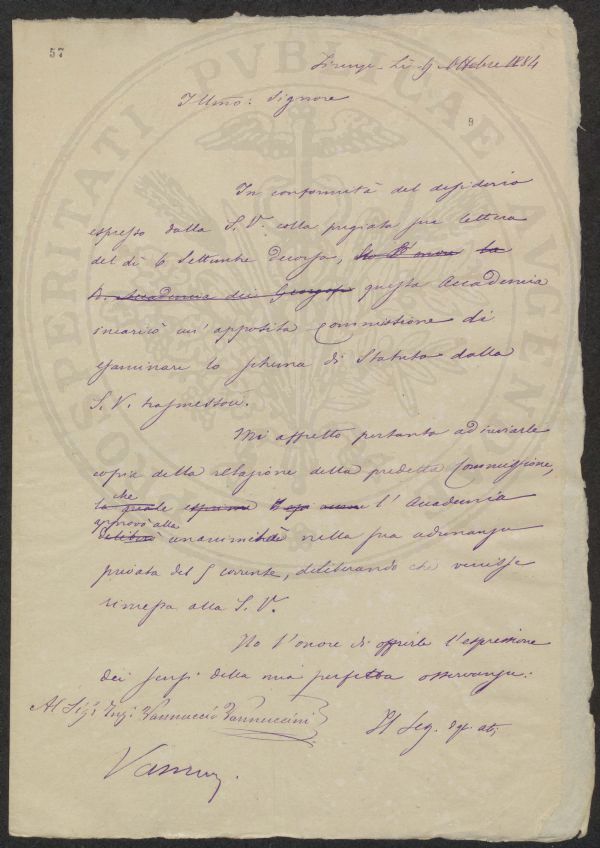 57
Firenze - Li 9 Ottobre 1884
Illmo: Signore
9
In conformità del desiderio
espresso dalla S. V. colla pregiata sua lettera
del dì 6 Settembre decorso, la
R. Accademia dei Georgof questa Accademia
incaricò un' apposita Commissione di
esaminare lo schema di Statuto dalla
S. V. trasmesso
Mi affretto pertanto ad inviarle
copia della relazione della predetta Commissione,
che
la quale esprime l' Accademia
approvò alla
deliberò unanimità nella sua adunanza
privata del 5 corrente, deliberando che venisse
rimessa alla S. V.
Ho l' onore di offrirle l' espressione
dei sensi della mia perfetta osservanza:
Al Sigr Ing: Vannuccio Vannuccini
Il Seg. degli atti
PROSPERITATI PVBLICAE AVGENDAE